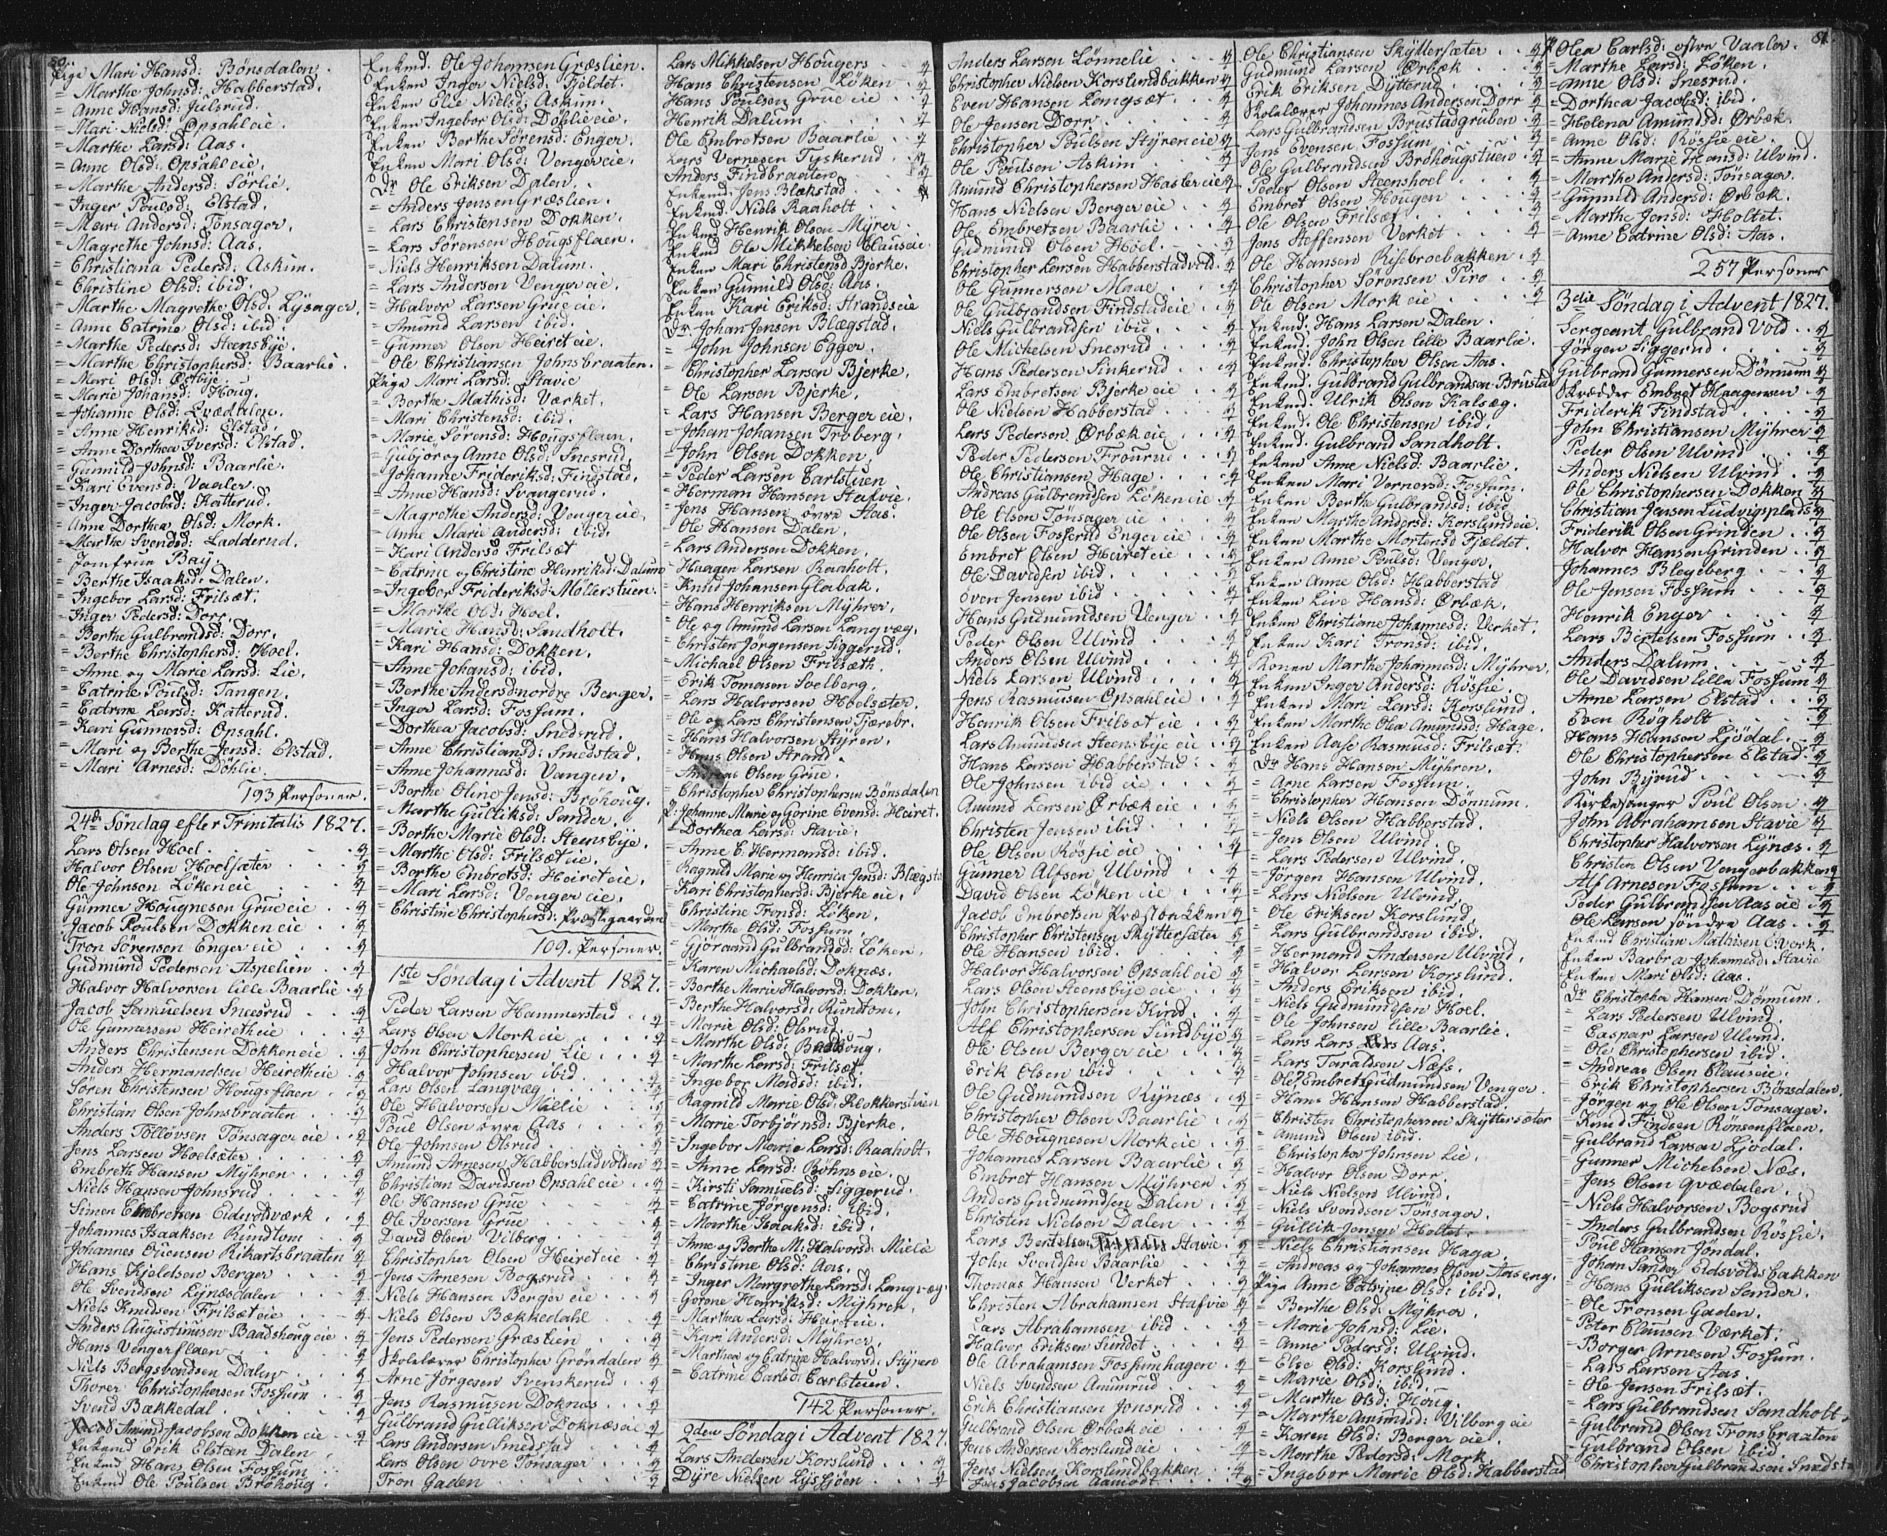 80.
Pige Mari Hansd: Bönsdalen.
= Marthe Johnsd: Habberstad.
= Anne Hansd: Julsrud.
= Mari Nielsd: Opsahl eie.
= Marthe Larsd: Aas.
= Anne Olsd: Opsahl eie.
= Marthe Andersd: Sörlie.
= Inger Poulsd: Elstad.
= Mari Andersd: Tönsager.
= Magrethe Johnsd: Aas.
= Christiana Pedersd: Askim.
= Christine Olsd: ibid.
= Marthe Magrethe Olsd: Lysager.
= Anne Catrine Olsd: ibid
= Marthe Pedersd: Steensbye.
= Marthe Christophersd: Baarlie.
= Mari Olsd:
= Marie Johansd: Houg.
= Johanne Olsd: Qvædalen.
= Anne Henriksd: Elstad.
= Anne Dorthea Iversd: Elstad.
= Gunnild Johnsd: Baarlie.
= Kari Evensd: Vaaler.
= Inger Jacobsd: Katterud.
= Anne Dorthea Olsd: Mork.
= Marthe Svendsd: Ladderud.
= Jomfrue Bay
= Berthe Isaaksd: Dalen.
= Ingebor Larsd: Frilsæt.
= Inger Pedersd: Dorr.
= Berthe Gulbrandsd: Dorr.
= Berthe Christophersd: Hoel.
= Anne og Marie Larsd: Lie.
= Catrine Poulsd: Tangen.
= Catrine Larsd: Katterud.
= Kari Gunnersd: Opsahl.
= Mari og Berthe Jensd: Elstad.
= Mari Arnesd: Döhlie.
193 Personer.
24de Söndag efter Trinitatis 1827.
Lars Olsen Hoel.
Halvor Olsen Hoelsæter
Ole Johnsen Löken eie
Gunner Hougnesen Grue eie
Jacob Poulsen Dokken eie
Tron Sörensen Enger eie
Gudmund Pedersen Aspelien
Halvor Halvorsen lille Baarlie
Jacob Samuelsen Snesrud
Ole Gunnersen Heiret eie
Anders Christensen Dokken eie
Anders Hermandsen Heiret eie
Sören Christensen Hougsflaen
Christian Olsen Johnsbraaten
Anders Tollövsen Tönsager eie
Jens Larsen Hoelsæter
Embreth Hansen Myhren
Niels Hansen Johnsrud
Simen Embretsen Eidsvoldværk
Johannes Isaaksen Rundtom
Johannes Ovensen Rikartsbraaten
Hans Kjeldsen Berger
Ole Svendsen Lynæsdalen
Niels Knudsen Frilsæt eie
Anders Augustinusen Baadshoug eie
Hans Vengerflaen
Niels Bergsvendsen Dalen
Thorer Christophersen Fossum
Svend Bækkedal
Amund Jacobsen Dokken eie
Enkemd Erik Elstan Dalen
Enkemd Hans Olsen Fossum
Enkemd Ole Poulsen Bröhoug
Enkemd. Ole Johannsen Græslien.
Enken Inger Nielsd: Fjeldet.
Enken Elie Nielsd: Askim.
Enken Ingebor Olsd: Döhlie eie.
Enken Berthe Sörensd: Enger.
Enken Mari Olsd: Venger eie.
Dr Ole Eriksen Dalen.
= Anders Jensen Græslien.
= Lars Christensen Dokken.
= Lars Sörensen Hougsflaen.
= Niels Henriksen Dalum.
= Lars Andersen Venger eie.
= Halvor Larsen Grue eie.
= Amund Larsen ibid.
= Gunner Olsen Heiret eie.
Ole Christiansen Johnsbraaten.
Pige Mari Larsd: Stavie
= Berthe Mathisd: Værket.
= Mari Christensd: ibid.
= Marie Sörensd: Hougsflaen.
= Gubjor og Anne Olsd: Snesrud.
Johanne Frideriksd: Findstad.
= Anne Hansd: Svangerud.
= Magrethe Andersd: Venger eie.
= Anne Marie Andersd: ibid.
= Kari Andersd Frilsæt
= Catrine og Christine Henriksd: Dalum
= Ingebor Frideriksd: Möllerstuen.
= Marthe Olsd: Hoel.
= Marie Hansd: Sandholt.
= Kari Hansd: Dokken.
= Anne Johansd: ibid.
= Berthe Andersd nordre Berger.
= Inger Larsd: Fossum.
= Dorthea Jacobsd: Snedsrud.
= Anne Christiansd: Smedstad.
= Anne Johannesd: Vangen.
= Berthe Oline Jensd: Bröhoug.
= Marthe Gulliksd: Sander.
= Berthe Marie Olsd: Steensbye.
= Marthe Olsd: Frilsæt eie.
= Berthe Embretsd: Heiret eie.
= Mari Larsd: Venger eie.
= Christine Christophersd: Præstegaarden
109. Personer.
1ste Söndag i Advent 1827.
Peder Larsen Hammerstad
Lars Olsen Mork eie
John Christophersen Lie
Halvor Johnsen ibid
Lars Olsen Langvæg
Ole Halvorsen Nallie
Poul Olsen övre Aas
Ole Johnsen Olsrud
Amund Arnesen Habberstadvolden
Christian Davidsen Opsahl eie
Ole Hansen Grue
Ole Iversen Grue
David Olsen Vilberg
Christopher Olsen Heiret eie
Jens Arnesen Bogsrud
Niels Hansen Berger eie
Niels Olsen Bækkedahl
Jens Pedersen Græslien
Skolelærer Christopher Gröndalen
Arne Jörgesen Svenskerud
Jens Rasmusen Doknæs
Gulbrand Gulliksen Doknæs eie
Lars Andersen Smedstad
Lars Olsen övre Tönsager
Tron Gaden
Lars Mikkelsen Hougers
Hans Christensen Löken
Hans Poulsen Grue eie
Henrik Dalum
Ole Embretsen Baarlie
Lars Vernesen Tyskerud
Anders Findbraaten
Enkemd. Jens Blækstad
Enkemd. Niels Raaholt
Enkemd Henrik Olsen Myrer
Enkemd Ole Mikkelsen Clauseie
Enken Mari Christensd Bjerke.
Enken Gunnild Olsd: Aas.
Enken Kari Eriksd: Strands eie
Dr Johan Jensen Blægstad.
= John Johnsen Egger.
= Christopher Larsen Bjerke.
= Ole Larsen Bjerke.
= Lars Hansen Berger eie.
= Johan Johansen Troberg.
= John Olsen Dokken
= Peder Larsen Carlstuen
= Herman Hansen Stafvie.
= Jens Hansen övre Aas.
= Ole Hansen Dalen.
= Lars Andersen Dokken.
= Haagen Larsen Raaholt.
= Knud Johansen Glabak.
= Hans Henriksen Myhrer.
= Ole og Amund Larsen Langvæg.
= Christen Jörgensen Siggerud.
= Michael Olsen Frilsæth.
= Erik Tomasen Svelberg.
= Lars Halvorsen Hoelsæter.
= Ole og Lars Christensen Tjærebr.
= Hans Halvorsen Styren.
= Hans Olsen Strand.
= Andreas Olsen Grue.
= Christopher Christophersen Bönsdalen
P. Johanne Marie og Gorine Evensd: Heiret.
= Dorthea Larsd: Stavie.
= Anne C. Hermansd: ibid.
Ragnild Marie og Henrica Jensd: Blægsta
= Kari Christophersd: Bjerke eie.
= Christine Tronsd: Löken.
= Marthe Olsd: Fossum.
= Gjörand Gulbrandsd: Löken.
= Karen Michaelsd: Doknæs.
= Berthe Marie Halvorsd: Dokken.
= Berthe Halvorsd: Rundtom.
= Marie Olsd: Olsrud
= Marthe Olsd: Baadshoug.
= Marthe Larsd: Frilsæt
= Ingebor Madsd: ibid.
= Ragnild Marie Olsd: Klokkerstuen
= Marie Torbjörnsd: Bjerke.
= Ingebor Marie Larsd: Raaholt.
= Anne Larsd: Böhns eie.
= Kirsti Samuelsd: Siggerud.
= Catrine Jörgensd: ibid.
= Marthe Isaaksd: ibid.
= Anne og Berthe M: Halvorsd: Mielie
= Christine Olsd: Aas.
= Inger Margrethe Larsd: Langvæg
= Gorene Henriksd: Myhrer.
= Martha Larsd: Heireeie.
= Kari Andersd: Myhrer.
= Marthea og Catrine Halvorsd: Styren
= Catrine Carlsd: Carlstuen.
142 Personer.
2den Söndag i Advent 1827.
Lars Andersen Korslund
Dyre Nielsen Ljsgjöen
Anders Larsen Lönnelie
Christopher Nielsen Korslundbakken
Even Hansen Lomgsæt
Ole Jensen Dorr
Christopher Poulsen Styren eie
Ole Poulsen Askim
Amund Christophersen Hasler eie
Hans Nielsen Berger eie
Ole Embretsen Baarlie
Gudmund Olsen Hoel
Christopher Larsen Habberstadvold.
Ole Gunnersen Maae
Ole Gulbrandsen Findstad eie
Niels Gulbrandsen ibid
Ole Mickelsen Snesrud
Hans Pedersen Finkerud
Lars Embretsen Bjerke eie
Ole Nielsen Habberstad
Lars Pedersen Örbæk eie
Peder Pedersen Frourud
Ole Christiansen Hage
Andreas Gulbrandsen Löken eie
Ole Olsen Tönsager eie
Ole Olsen Fosserud Enger eie
Embret Olsen Heiret eie
Ole Davidsen ibid
Even Jensen ibid
Hans Gudmundsen Venger
Peder Olsen Ulvind
Anders Olsen Ulvind
Niels Larsen Ulvind
Jens Rasmusen Opsahl eie
Henrik Olsen Frilsæt eie
Lars Amundsen Steensbye eie
Hans Larsen Habberstad
Ole Johnsen ibid eie
Amund Larsen Örbæk eie
Christen Jensen ibid
Ole Olsen Rösie eie
Gunner Alfsen Ulvind
David Olsen Löken eie
Jacob Embretsen Præstbakken
Christopher Christensen Skyttersæter
Ole Hansen ibid.
Halvor Halvorsen Opsahl eie
Lars Olsen Steensbye eie
John Christophersen Kind
Alf Christophersen Sundbye
Ole Olsen Berger eie
Erik Olsen ibid
Ole Gudmundsen Rynæs
Christopher Olsen Baarlie
Ole Hougnesen Mork eie
Johannes Larsen Baarlie
Embret Hansen Myhrer
Anders Gudmundsen Dalen
Christen Nielsen Dalen
Lars Bertelsen Stavie
John Svendsen Baarlie
Thomas Hansen Verket
Christen Abrahamsen Stafvie
Lars Abrahamsen ibid
Halvor Eriksen Sundet
Ole Abrahamsen Fossumhagen
Niels Svendsen Amumrud
Erik Christiansen Jonsrud
Gulbrand Olsen Örbæk eie
Jens Andersen Korslund eie
Jens Nielsen Korslundbakken
Jens Jacobsen Aamodt
Ole Christiansen Skyttersæter
Gudmund Larsen Örbæk
Erik Eriksen Dytterud
Skolelærer Johannes Andersen Dorr
Lars Gulbrandsen Brustadgruben
Jens Evensen Fossum
Ole Gulbrandsen Bröhougstuen
Peder Olsen Steenshoel
Embret Olsen Hougen
Ole Olsen Frilsæt
Jens Steffensen Verket
Ole Hansen Risebroebakken
Christopher Sörensen Tiro
Ole Olsen Mork eie
Enkemd: Hans Larsen Dalen.
Enkemd: John Olsen lille Baarlie.
Enkemd: Christopher Olsen Aas.
Enkemd: Gulbrand Gulbrandsen Brustad
Enkemd: Ulrik Olsen Kalsæg.
Enkemd. Ole Christensen ibid.
Enkemd. Gulbrand Sandholt.
Enken Anne Nielsd: Baarlie.
Enken Mari Vernersd: Fossum.
Enken Berthe Gulbrandsd: ibid
Enken Marthe Andersd: Korslund eie.
Enken Marthe Mortensd Fjældet.
Enken Anne Poulsd: Venger.
Enken Anne Olsd: Habberstad
Enken Live Hansd: Örbæk.
Enken Christiane Johannesd: Verket.
Enken Kari Tronsd: ibid.
Konen Marthe Johannesd: Myhrer.
Enken Inger Andersd: Rösie.
Enken Mari Larsd: Korslund.
Enken Marthe Olea Amundsd: Hage.
Enken Aase Rasmusd: Frilsæt.
Dr Hans Hansen Myhren.
= Arne Larsen Fossum.
= Christopher Hansen Dönnum.
= Niels Olsen Habberstad.
= Jens Olsen Ulvind.
= Lars Pedersen Ulvind.
= Jörgen Hansen Ulvind.
= Lars Nielsen Ulvind.
= Ole Eriksen Korslund.
= Lars Gulbrandsen ibid.
= Hermand Andersen Ulvind.
= Halvor Larsen Korslund.
= Anders Eriksen ibid.
= Niels Gudmundsen Hoel.
= Ole Johnsen lille Baarlie.
= Lars Lars Aas.
= Lars Taraldsen Næss.
= Ole Embret Gudmundsen Venger.
= Hans Hansen Habberstad
= Christen Christophersen Skyttersæter
= Amund Olsen ibid.
= Christopher Johnsen Lie.
= Halvor Olsen Dorr.
= Niels Nielsen Ulvind.
= Niels Svendsen Tonsager.
= Gullik Jensen Holtet.
= Niels Christiansen Haga.
= Andreas og Johannes Olsen Aaseng.
Pige Anne Catrine Olsd: ibid.
= Berthe Olsd: Myhrer.
= Marie Johnsd: Lie.
= Anne Pedersd: Ulvind.
= Else Olsd: Korslund.
= Marie Olsd: ibid.
= Marthe Olsd: Houg.
= Marthe Amundsd: Vilberg eie
= Karen Olsd: Berger eie.
= Marthe Pedersd: Mork
= Ingebor Marie Olsd: Habberstad
81.
P Olea Carlsd: östre Vaaler.
= Marthe Larsd: Löken.
= Anne Olsd: Snesrud.
= Dorthea Jacobsd: ibid.
= Helena Amundsd: Örbæk.
= Anne Olsd: Rösie eie.
= Anne Marie Hansd: Ulvind.
= Marthe Andersd: Tönsager.
= Gunnild Andersd: Örbæk.
= Marthe Jensd: Holtet.
= Anne Catrine Olsd: Aas.
257 Personer
3die Söndag i Advent 1827.
Sergeant Gulbrand Vold
Jörgen Siggerud
Gulbrand Gunnersen Dönnum
Skrædder Embret Haagensen
Friderik Findstad
John Christiansen Myhrer
Peder Olsen Ulvind
Anders Nielsen Ulvind
Ole Christophersen Dokken
Christian Jensen Ludvigsplads
Friderik Olsen Grinden
Halvor Hansen Grinden
Johannes Bleyeberg
Ole Jensen Fossum
Henrik Enger
Lars Bertelsen Fossum
Anders Dalum
Ole Davidsen lille Fossum
Arne Larsen Elstad
Even Rögholt
Hans Hansen Ljödal
Ole Christophersen Elstad
John Byrud
Kirkesanger Poul Olsen
John Abrahamsen Stavie
Christopher Halvorsen Lynæs
Christen Olsen Vengerbakken
Alf Arnesen Fossum
Peder Gulbrandsen Aas eie
Ole Larsen söndre Aas
Enkemd Christian Mathisen Verk.
Enken Barbra Johannesd: Stavie
Enken Mari Olsd: Aas.
Dr Christopher Hansen Dönnum.
= Lars Pedersen Ulvind.
= Caspar Larsen Ulvind.
= Ole Christophersen ibid.
= Andreas Olsen Clauseie.
= Erik Christophersen Bönsdalen.
= Jörgen og Ole Olsen Tonsager.
= Knud Findsen Rönsenflaen.
= Gulbrand Larsen Ljödal.
= Gunner Michelsen Næs.
= Jens Olsen Qvædalen.
= Niels Halvorsen Bogsrud
= Anders Gulbrandsen Rösie.
= Poul Hansen Jöndal.
= Johan Sander Eidsvoldsbakken
= Hans Gulliksen Sander.
= Ole Tronsen Gaden.
= Peter Clausen Værket.
= Borger Arnesen Fossum.
= Lars Larsen Aas.
= Ole Jensen Frilsæt.
= Lars Gulbrandsen Sandholt
= Gulbrand Olsen Tronsbraaten
= Gulbrand Olsen ibid
= Christopher Gulbrandsen Snedst